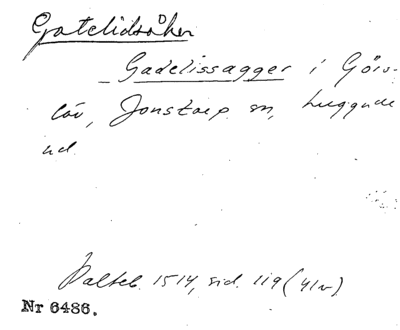 Gatelidsåker
_ Gadelissagger i Görs-
löv, Jonstorp sn, Luggude
hd.
Palteb. 1514, sid. 119 (41v).
Nr 6486.